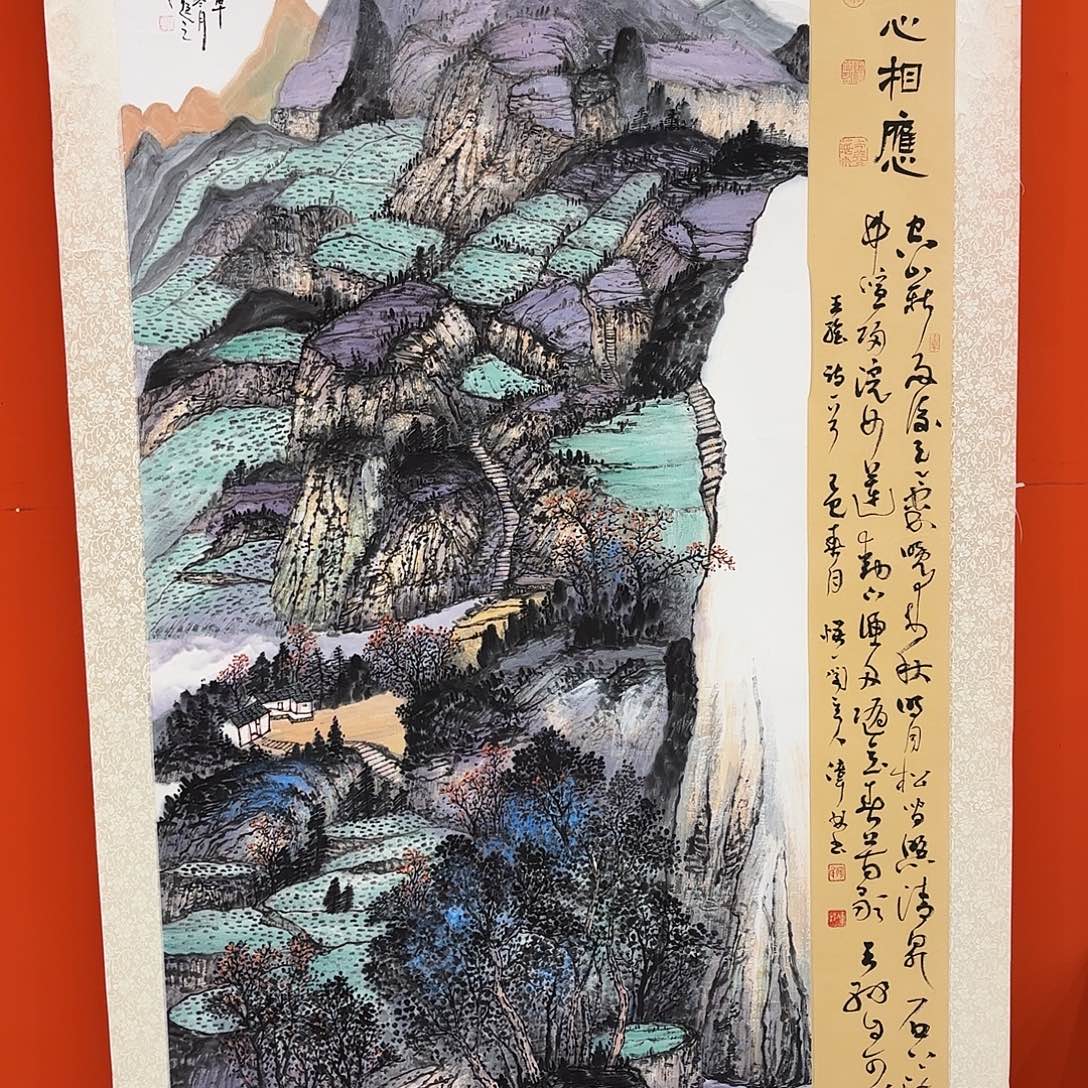 心相應
空山新雨後天氣晚来秋明月松間照清泉石上
竹喧歸浣女蓮動下漁舟隨意春芳歇王孫自可
王維詩一首 春月 書